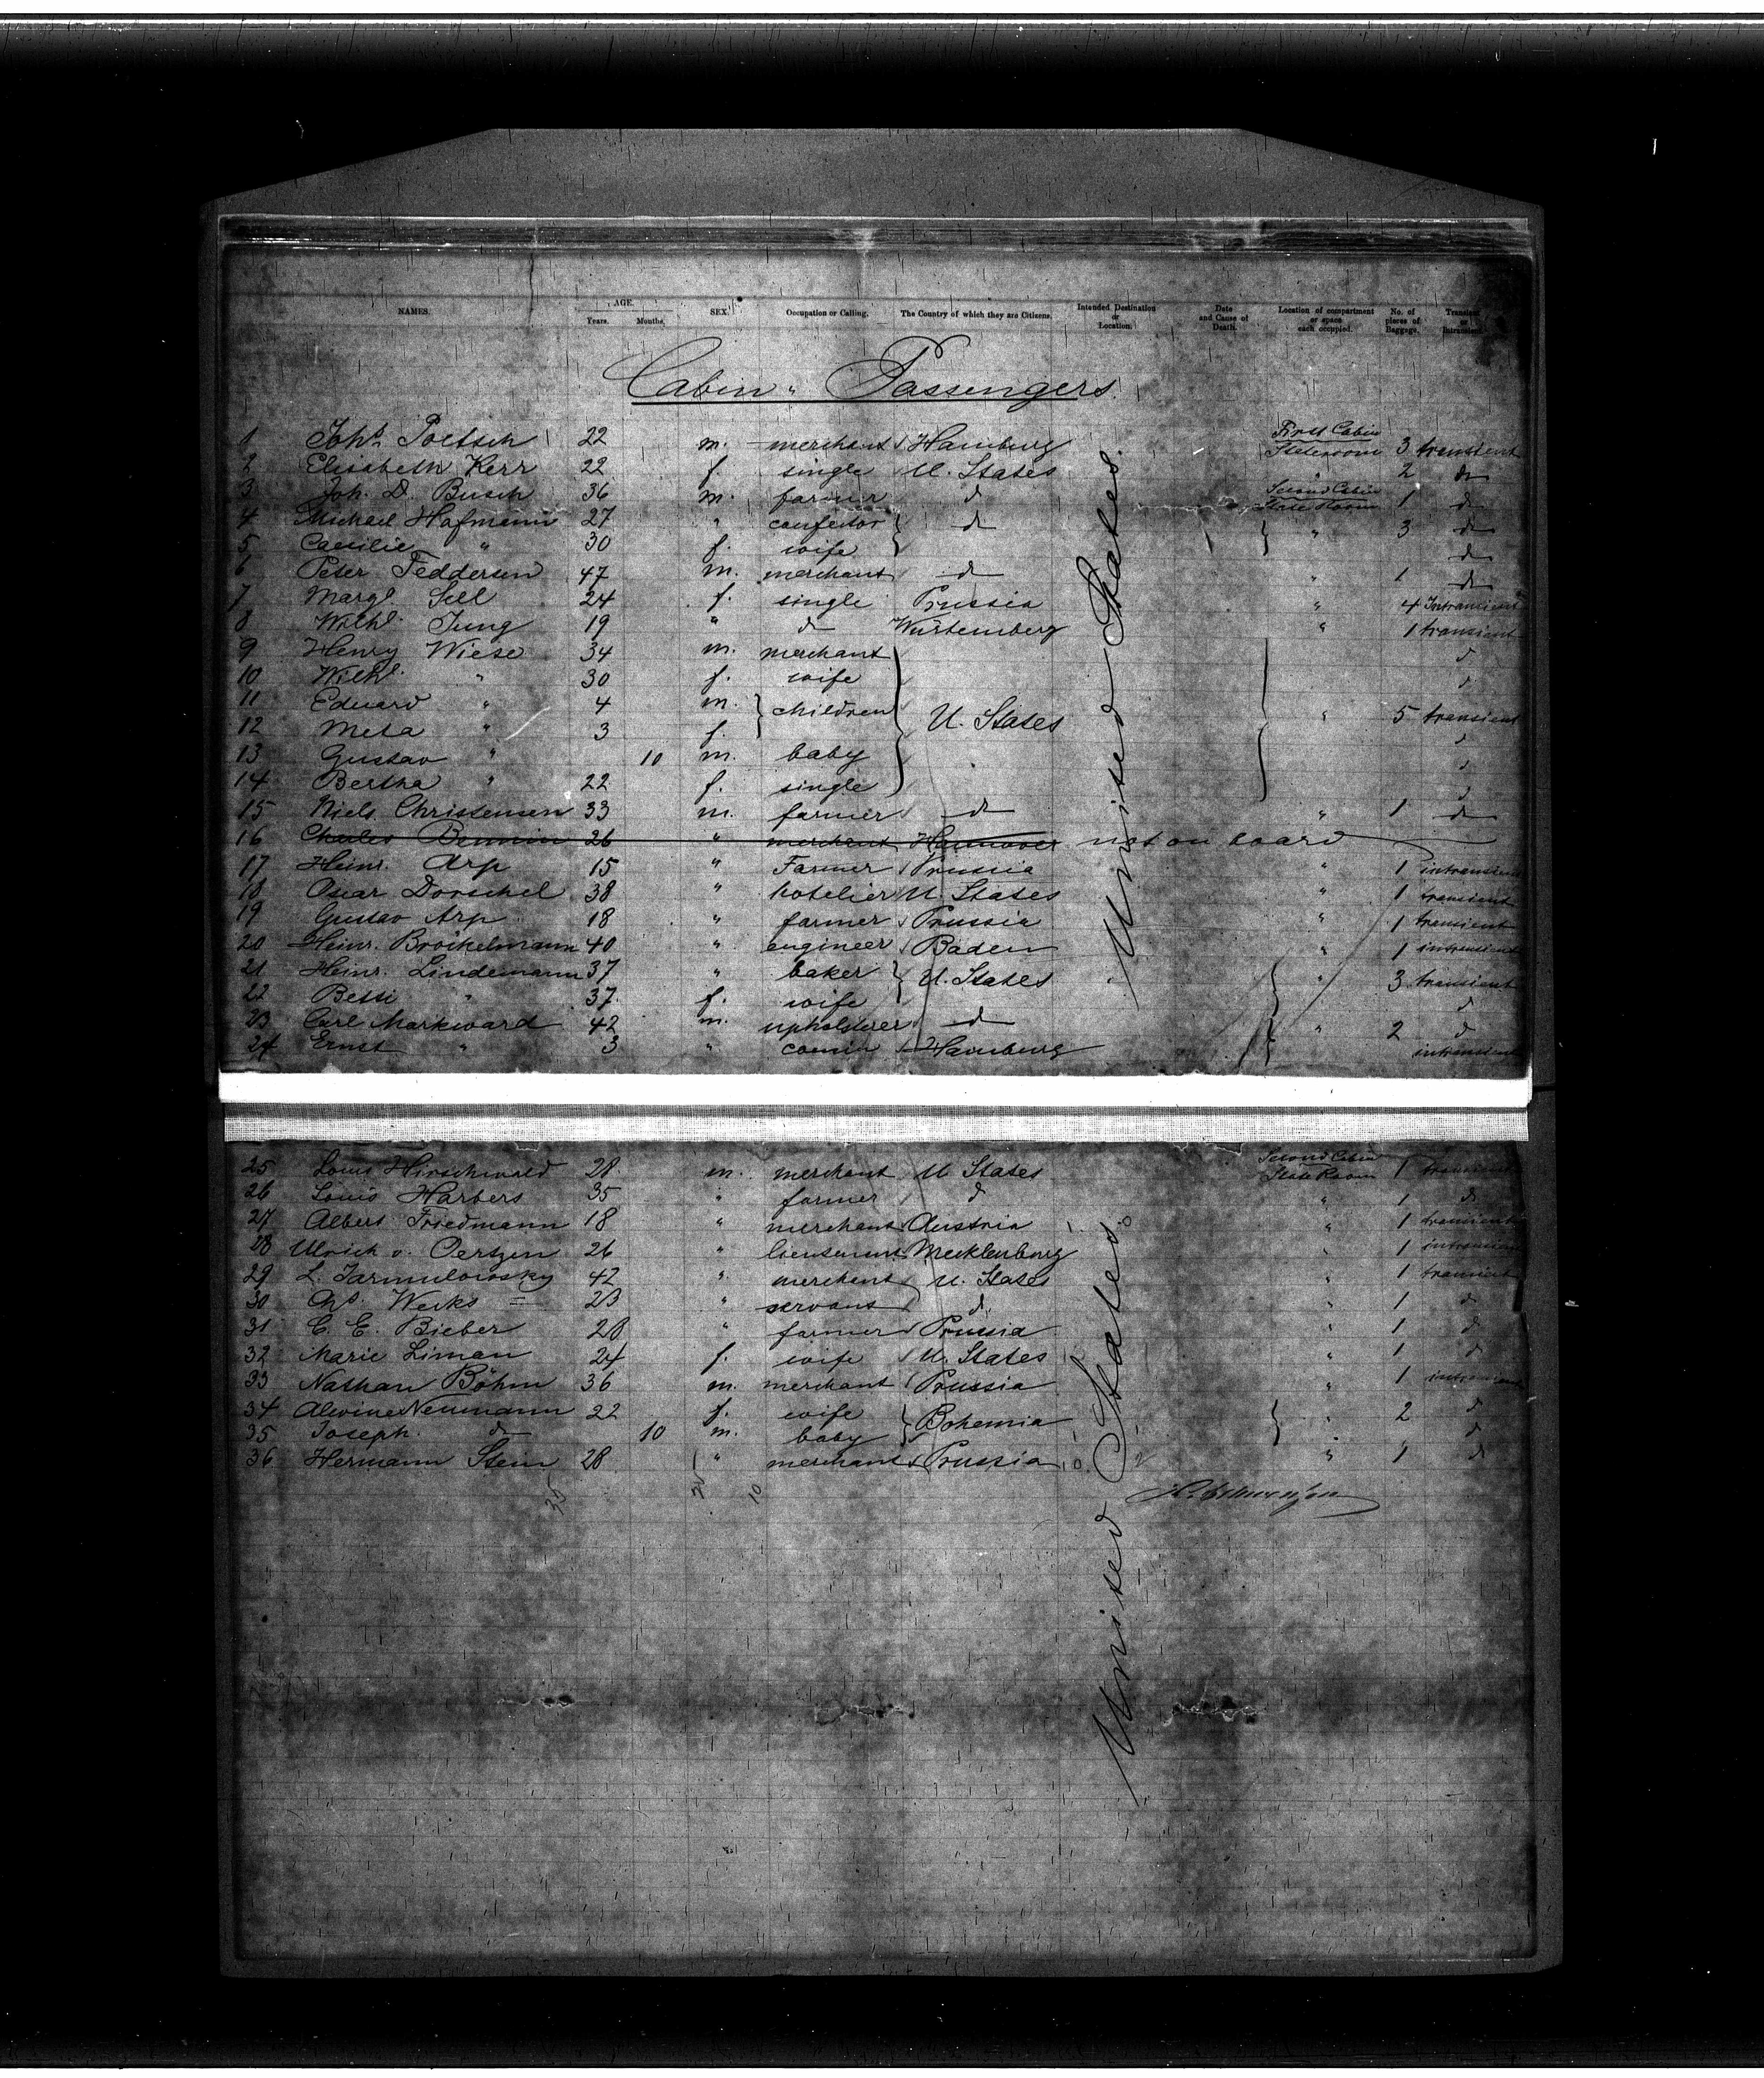 NAMES. AGE. Years. Months. SEX. Occupation or Calling. The Country of which they are Citizens. Intended Destination or Location. Date and Cause of Death. Location of compartment or space each occupied. No. of pieces of Baggage. Transient or Intransient.
Cabin Passengers.
1 Johs. Poetsch 22 m. merchant Hamburg First Cabin Stateroom 3 transient
2 Elisabeth Kerr 22 f. single U. States " 2 do
3 Joh. D. Busch 36 m. farmer do Second Cabin State Room 1 do
4 Michael Hofmann 27 " confector do " 3 do
5 Caecilie " 30 f. wife do
6 Peter Feddersen 47 m. merchant do " 1 do
7 Margt. Sell 24 f. single Prussia " 4 Intransient
8 Wilh. Jung 19 " do Würtemberg " 1 transient
9 Henry Wiese 34 m. merchant do
10 Wilh. " 30 f. wife do
11 Eduard " 4 m. children U. States " 5 transient
12 Meta " 3 f. do
13 Gustav " 10 m. baby do
14 Bertha " 22 f. single do
15 Niels Christensen 33 m. farmer do " 1 do
16 Charles 26 " merchant Hannover not on board
17 Heinr. Arp 15 " Farmer Prussia " 1 intransient
18 Oscar Dorschel 38 " hotelier U. States " 1 transient
19 Gustav Arp 18 " farmer Prussia " 1 transient
20 Heinr. Bröckelmann 40 " engineer Baden " 1 intransient
21 Heinr. Lindemann 37 " baker U. States " 3 transient
22 Betti " 37 f. wife do
23 Carl Markward 42 m. upholsterer do " 2 do
24 Ernst " 3 " Hamburg intransient
United States.
25 Louis Hirschwald 28 m. merchant U States Second Cabin State Room 1 transient
26 Louis Harbers 35 " farmer do " 1 do
27 Albert Friedmann 18 " merchant Austria " 1 transient
28 Ulrich v. Oertzen 26 " lieutenant Mecklenburg " 1 intransient
29 L. Jarmulowsky 42 " merchant U. States " 1 transient
30 Chs. Werks 23 " servant do " 1 do
31 C. E. Bieber 28 " farmer Prussia " 1 do
32 Marie Liman 24 f. wife U. States " 1 do
33 Nathan Böhm 36 m. merchant Prussia " 1 intransient
34 Alwine Neumann 22 f. wife Bohemia " 2 do
35 Joseph do 10 m. baby do
36 Hermann Stein 28 " merchant Prussia " 1 do
35 10
United States.